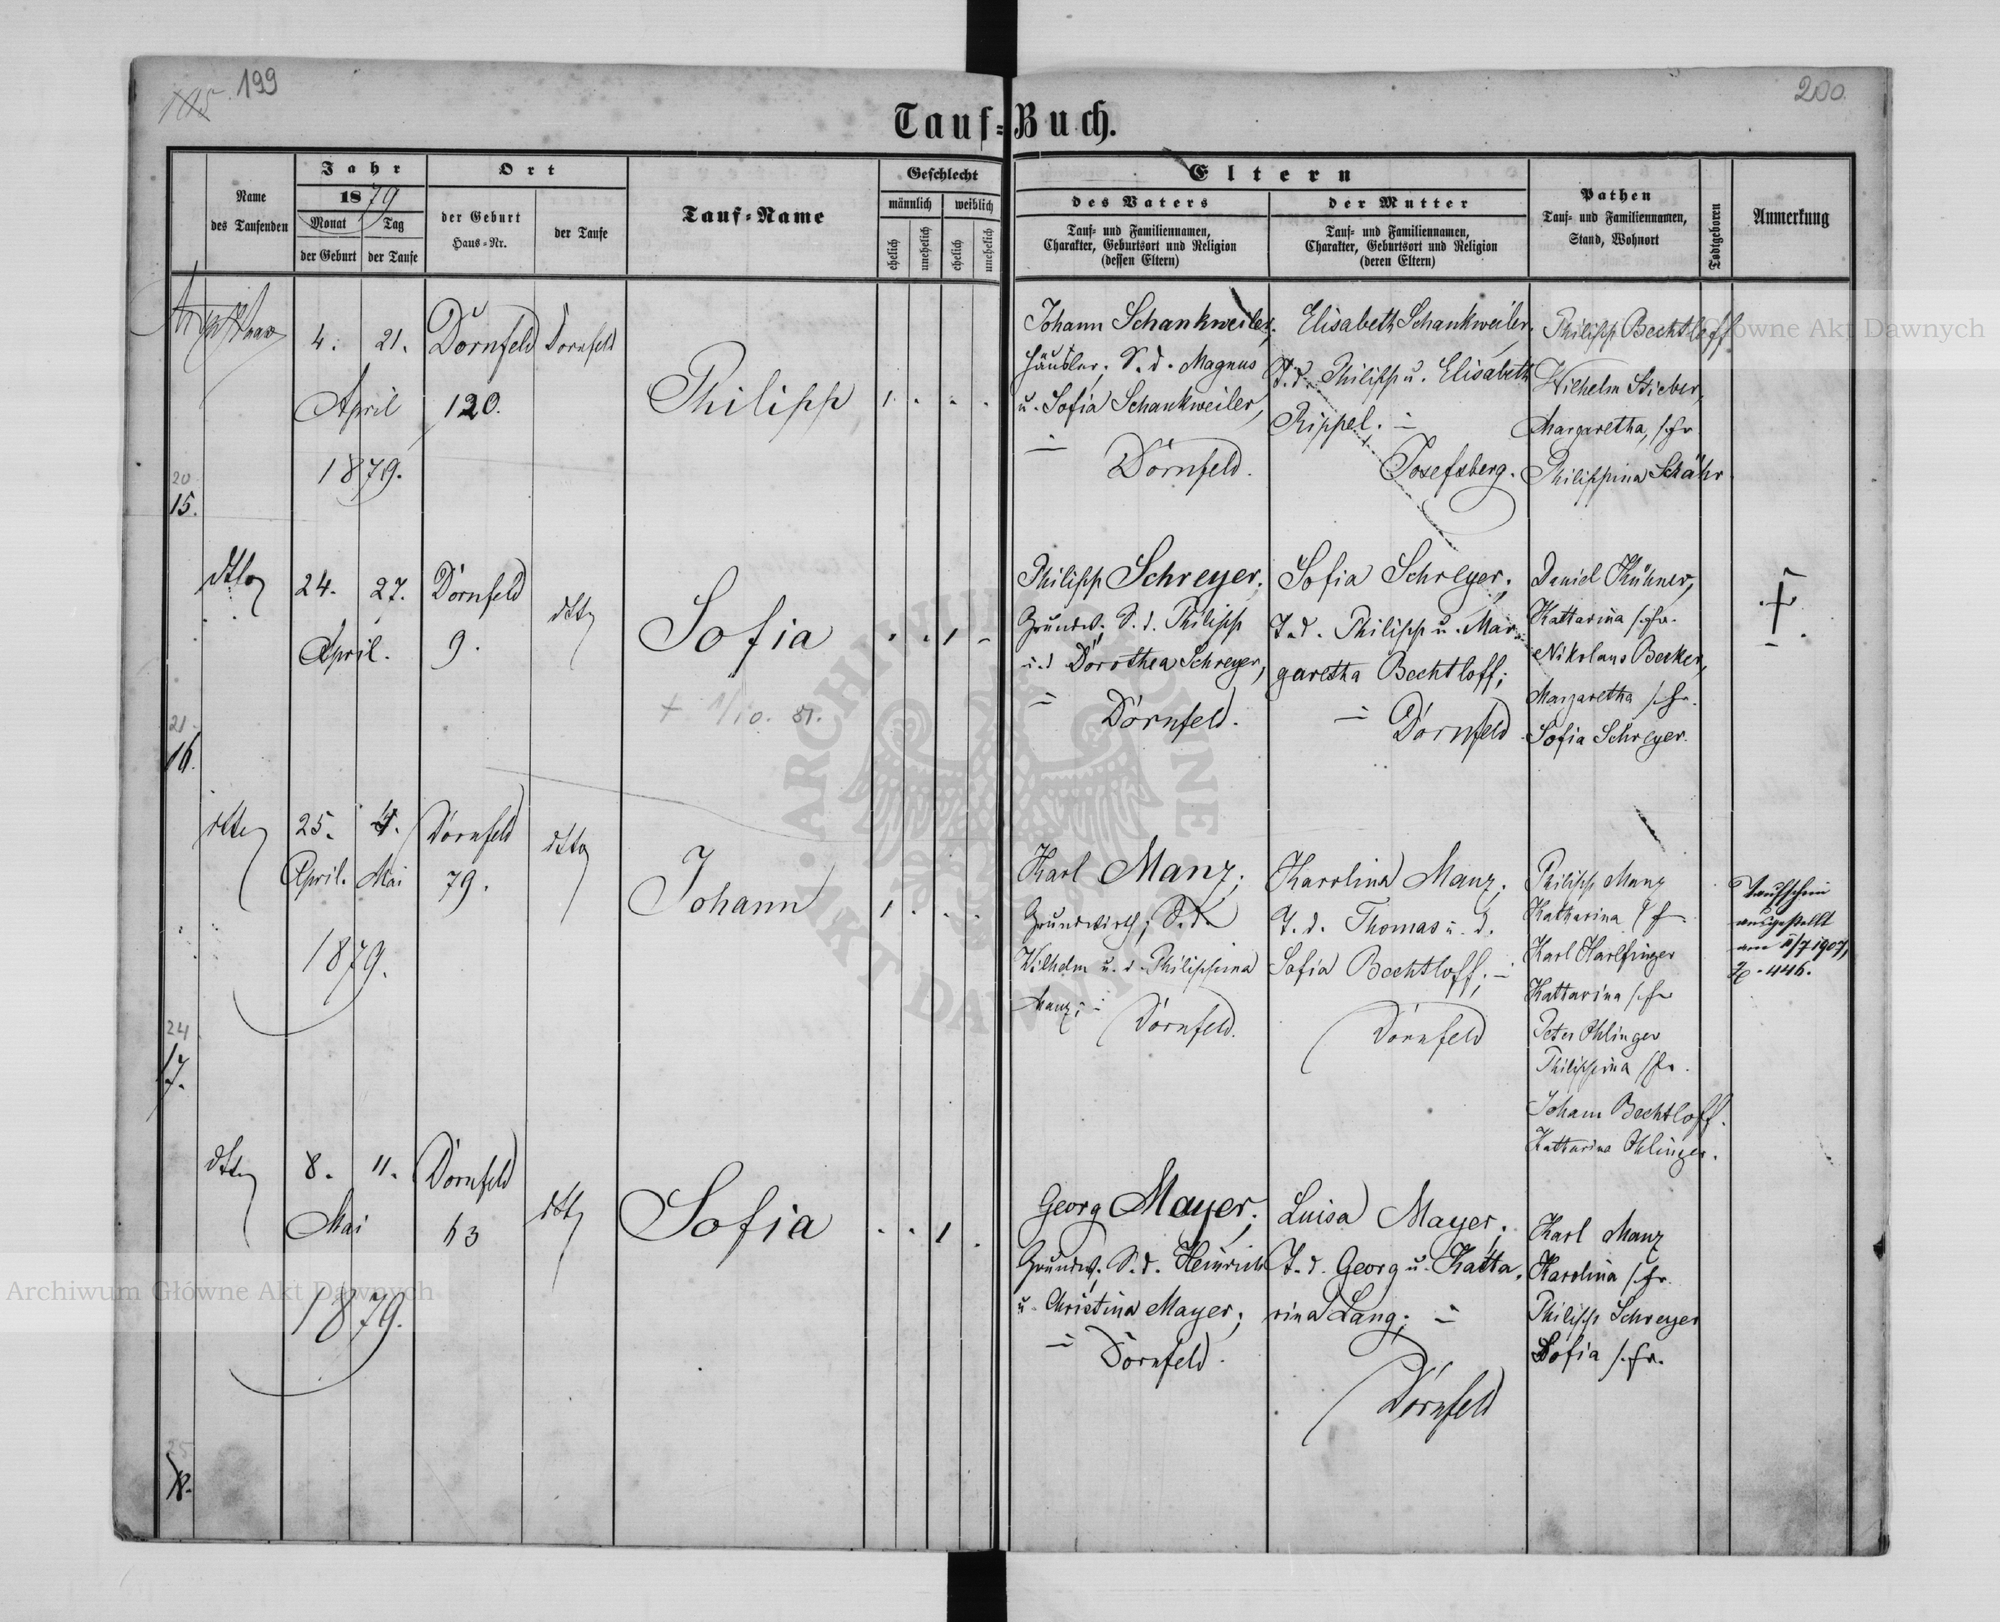 199
200
Tauf-Buch.
Name
des Taufenden
Jahr
1879
Monat
Tag
der Geburt
der Taufe
Ort
der Geburt
Haus-Nr.
der Taufe
Tauf-Name
Geschlecht
männlich
weiblich
ehelich
unehelich
ehelich
unehelich
Eltern
des Vaters
Tauf- und Familiennamen,
Charakter, Geburtsort und Religion
(dessen Eltern)
der Mutter
Tauf- und Familiennamen,
Charakter, Geburtsort und Religion
(deren Eltern)
Pathen
Tauf- und Familiennamen,
Stand, Wohnort
Todtgeboren
Anmerkung
20
15.
4. 21.
April
1879.
Dörnfeld
120.
Dornfeld
Philipp
1 . - .
Johann Schankweiler,
Häusler; S. d. Magnus
u. Sofia Schankweiler,
Dörnfeld.
Elisabeth Schankweiler,
T. d. Philipp u. Elisabeth
Rippel. -
Josefsberg.
Philipp Bechtloff
Wilhelm Stieber,
Margaretha, s. Fr
Philippina Schähr
21
16.
dtto
24. 27.
April.
Dörnfeld
9.
dtto
Sofia
+ 1/10. 81.
. . 1 -
Philipp Schreyer;
Grundw. S. d. Philipp
u. d Dorothea Schreyer,
Dörnfeld.
Sofia Schreyer;
T. d. Philipp u. Mar-
garetha Bechtloff;
Dörnfeld
Daniel Kühner,
Kattarina s. Fr.
Nikolaus Becker,
Margaretha s. Fr.
Sofia Schreyer.
†
24
17.
dtto
25. 4.
April. Mai
1879.
Dornfeld
79.
dtto
Johann
1 . . .
Karl Manz;
Grundwirth; S. d.
Wilhelm u. d. Philippina
Manz; -
Dörnfeld.
Karolina Manz;
T. d. Thomas u. d.
Sofia Bechtloff; -
Dörnfeld
Philipp Manz
Katharina s. Fr
Karl Harlfinger
Kattarina s. Fr
Peter Ohlinger
Philippina s. Fr.
Johann Bechtloff.
Kattarina Ohlinger.
Taufschein
ausgestellt
am 11/7 1907,
Z. 446.
25
18.
dtto
8. 11.
Mai
1879.
Dornfeld
63
dtto
Sofia
. . 1 .
Georg Mayer;
Grundw. S. d. Heinrich
u. Christina Mayer;
Dörnfeld.
Luisa Mayer;
T. d. Georg u. Katta-
rina Lang; -
Dörnfeld
Karl Manz
Karolina s. Fr.
Philipp Schreyer
Sofia s. Fr.
Archiwum Główne Akt Dawnych
Główne Akt Dawnych
ARCHIWUM GŁÓWNE AKT DAWNYCH